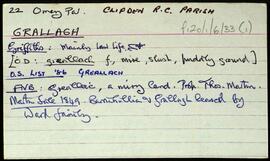 22 Omey Par. CLIFDEN R.C. PARISH
GRALLAGH
P120/1/6/33 (1)
Griffiths: Mainly Law Life
[O.D: greallach f, mire, slush, puddly ground]
O.S. LIST '86 GREALLACH
FNB: Greallaic, a miry land. Prop. Thos. Martin.
Martin Sale 1849. Barnahallia & Grallagh leased by
Ward family.